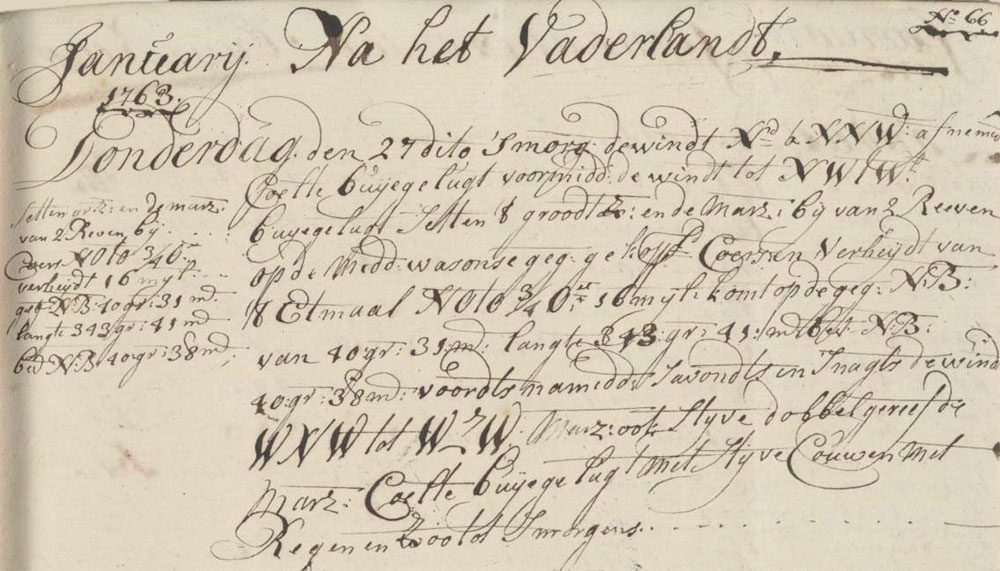 Nº 66
Januarij. Na het Vaderlandt.
1763.
Donderdag. den 27 dito Smorg: de windt Nd a NNW: afnemend
Coelte buijege lugt voormidd: de windt tot NWtWt
buijege lugt Setten 't groodt z: en de Marz: bij van 2 Reeven
op de Midd: was onse geg: gekopp: Coers en Verheijdt van
't Etmaal NOtO 3/4 Ot 16 mijl: komt op de geg: N:B:
van 40 gr: 31: m: langte 343: gr: 41: md best N:B:
40: gr: 38 md: voordts namidd: Savondts en Snagts de wind
WNW tot WZW. Marz: ook Styve dobbel gereefde
Marz: Coelte buijege lugt Met Styve Couwen Met
Regen en zoo tot Smorgens.
Setten gr: z: en de marz:
van 2 Reven bij
Coers NOtO 3/4 O
verheydt 16 myl
geg: N:B: 40 gr: 31 md
langte 343 gr: 41 md
bed N:B 40: gr: 38 md: